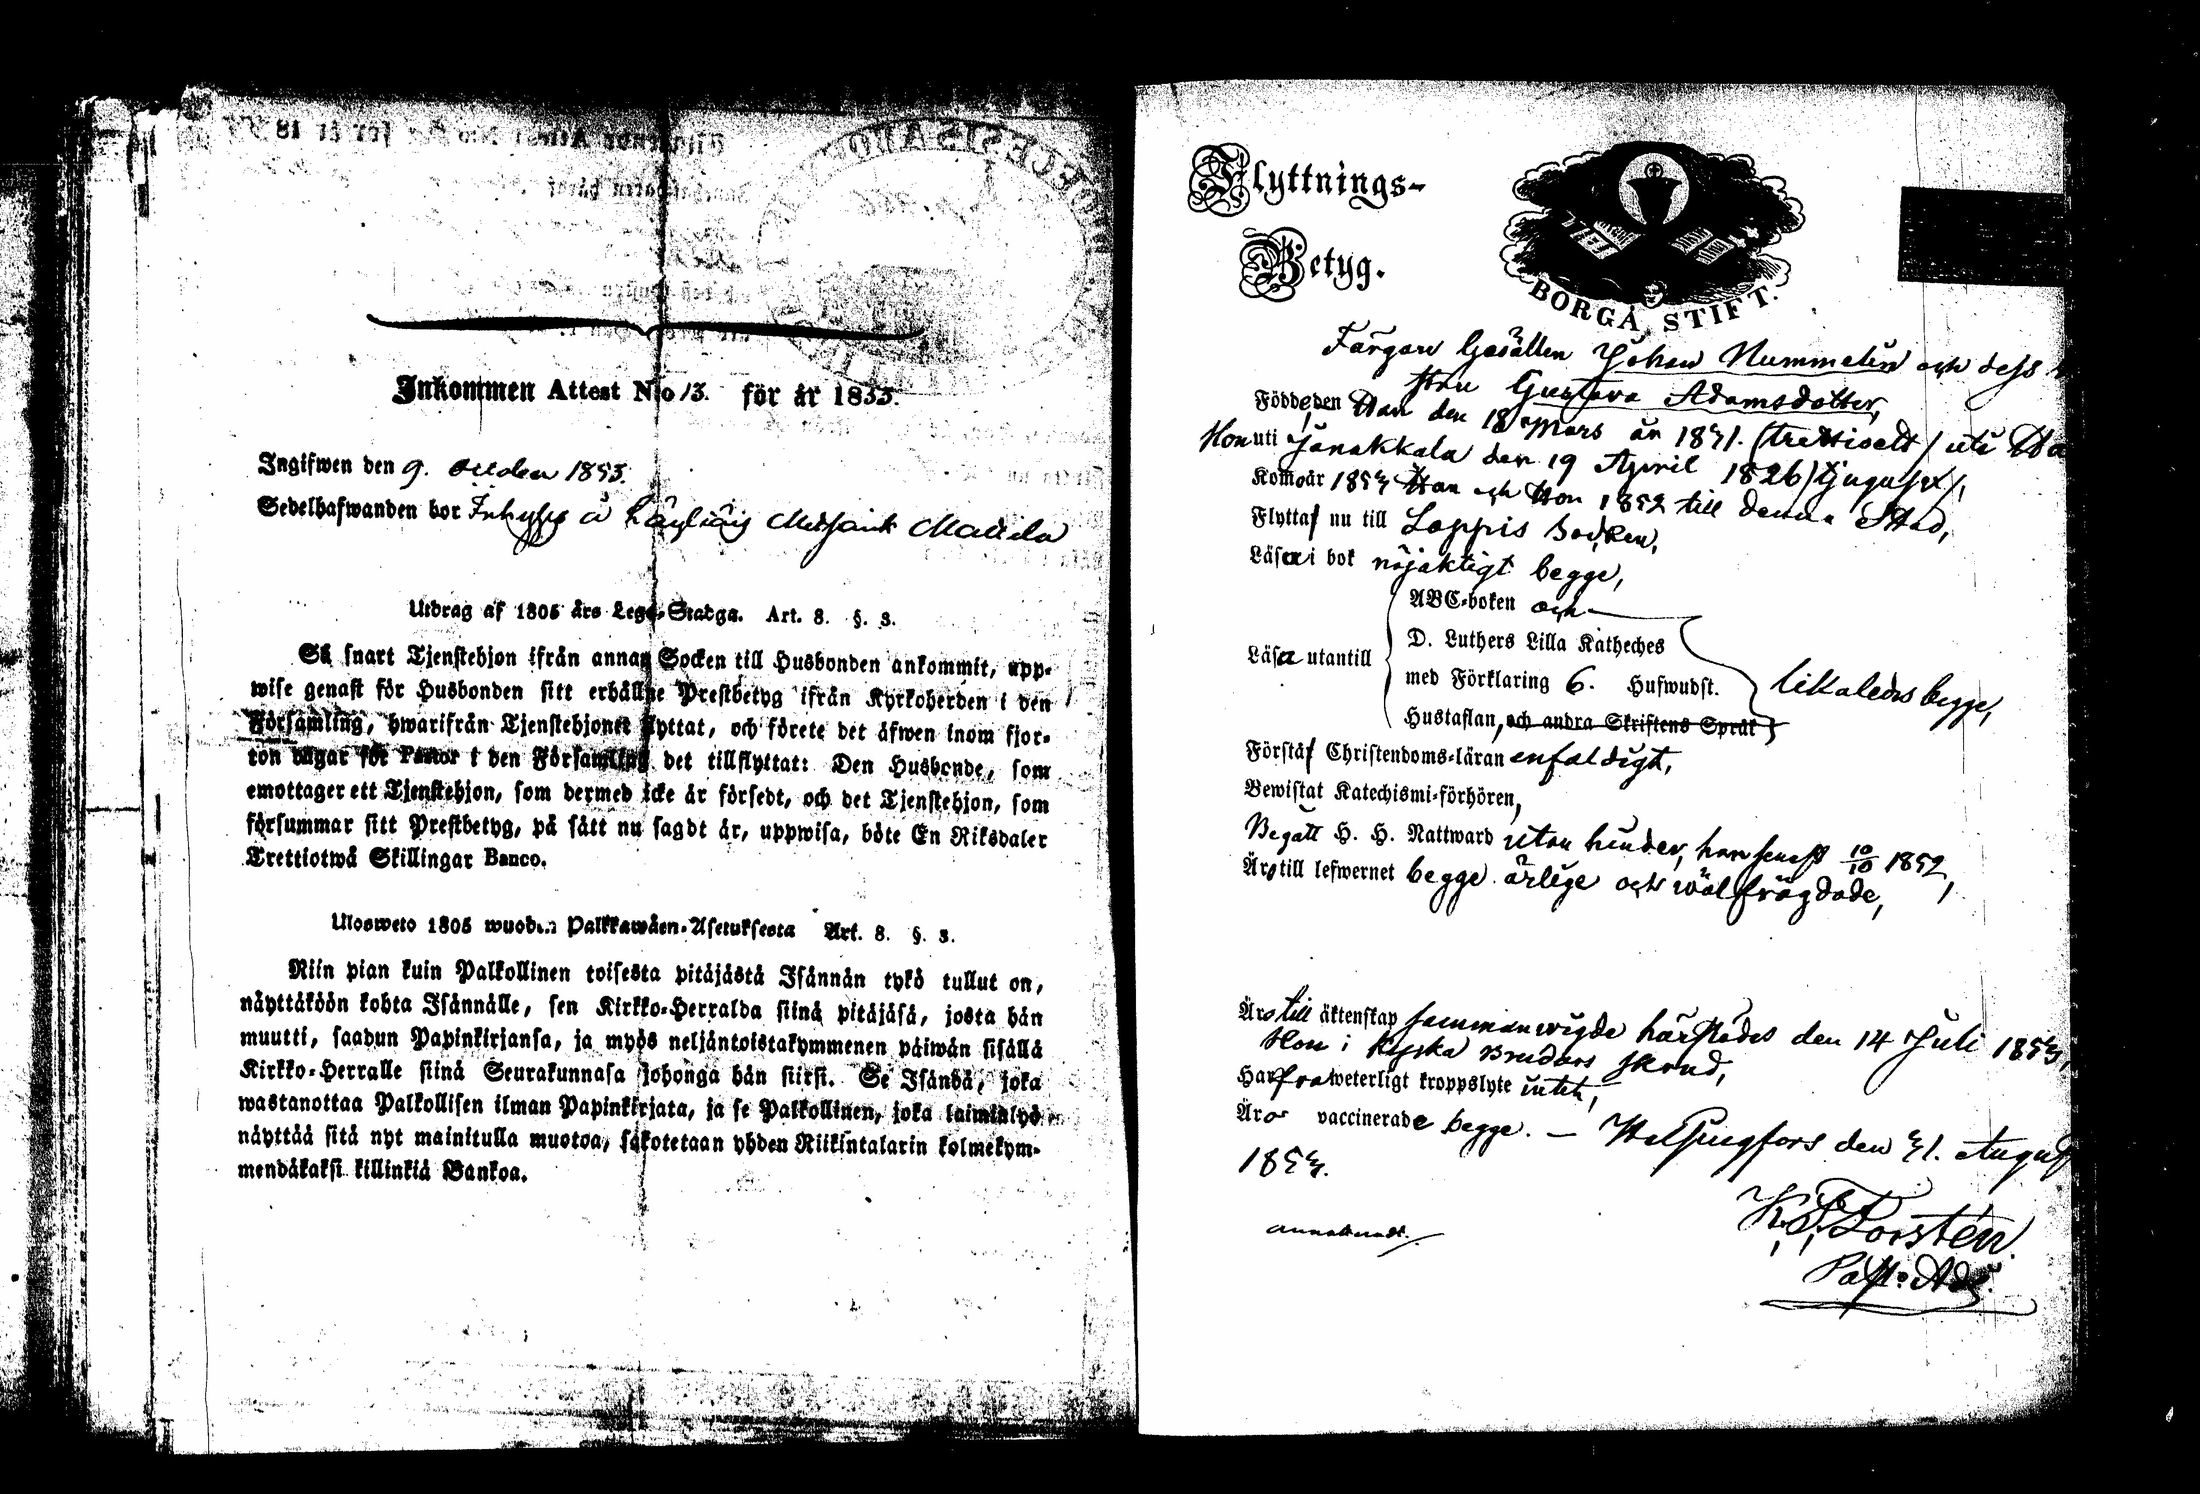 Inkommen Attest No 13. för år 1853.
Ingifwen den 9. october 1853.
Sedelhafwanden bor Inhyses å
Utdrag af 1805 års Lego-Stadga. Art. 8. §. 3.
Så snart Tjenstehjon ifrån annan Socken till Husbonden ankommit, upp-
wise genast för Husbonden sitt erhållne Prestbetyg ifrån Kyrkoherden i den
Församling, hwarifrån Tjenstehjonet flyttat, och förete det äfwen inom fjor-
ton dagar för Pastor i den Församling det tillflyttat: Den Husbonde, som
emottager ett Tjenstehjon, som dermed icke är försedt, och det Tjenstehjon, som
försummar sitt Prestbetyg, på sätt nu sagdt är, uppwisa, böte En Riksdaler
Trettiotwå Skillingar Banco.
Ulosweto 1805 wuoden Palkkawäen-Asetuksesta Art. 8. §. 3.
Niin pian kuin Palkollinen toisesta pitäjästä Isännän tykö tullut on,
näyttäköön kohta Isännälle, sen Kirkko-Herralda siinä pitäjäsä, josta hän
muutti, saadun Papinkirjansa, ja myös neljäntoistakymmenen päiwän sisällä
Kirkko-Herralle siinä Seurakunnasa johonga hän siirsi. Se Isändä, joka
wastanottaa Palkollisen ilman Papinkirjata, ja se Palkollinen, joka laiminlyö
näyttää sitä nyt mainitulla muotoa, sakotetaan yhden Riikintalarin kolmekym-
mendäkaksi killinkiä Bankoa.
Flyttnings-
Betyg.
BORGÅ STIFT.
Färgare Gesällen Johan Nummelin och dess
Hon Gustava Adamsdotter,
Födde, den Han den 18 Mars år 1831. (trettioett) uti
Hon uti Janakkala den 19 April 1826 (tjugusex),
Kommo år 1853 Han och Hon 1852 till denna Stad,
Flytta nu till Loppis Socken,
Läsa i bok nöjaktigt begge,
ABC-boken och
D. Luthers Lilla Katheches
Läsa utantill
med Förklaring 6. Hufwudst.
likaledes begge,
Hustaflan, och andra Skriftens Språk
Förstå Christendoms-läran enfaldigt,
Bewistat Katechismi-förhören,
Begått H. H. Nattward utan hinder, han senast 10/10 1852,
Äro till lefwernet begge ärlige och wälfrägdade,
Äro till äktenskap sammanwigde härstädes den 14 Juli 1853,
Hon i Kyska Brudars skrud,
Hafwa weterligt kroppslyte intet,
Äro vaccinerade begge. — Helsingfors den 31. August
1853.
K. J. Forstén.
Past. Adj.
annoteradt.